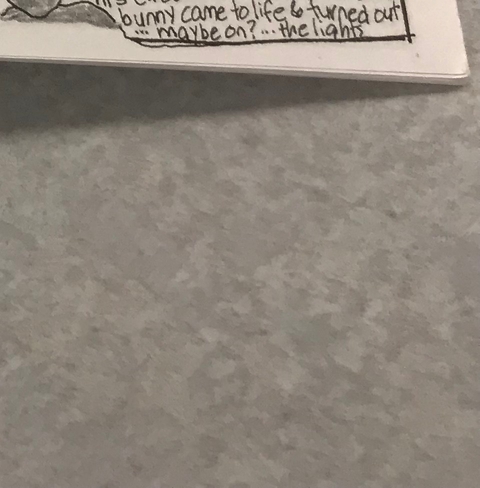 bunny came to life & turned out
... maybe on? ... the lights